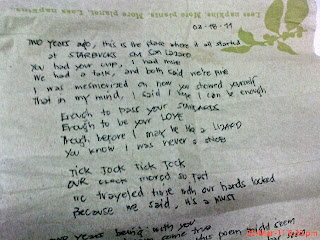 Less napkins. More plants. More planet.
02-18-11
Two years ago, this is the place where it all started
at STARBUCKS SM San Lazaro
You had your cup, I had mine
We had a talk, and both said we're fine
I was mesmerized on how you showed yourself
That in my mind, I said I hope I can be enough
Enough to pass your standards
Enough to be your LOVE
Though before I may be like a LIZARD
You know I was never a
Tick Tock Tick Tock
Our clock moved so fast
We traveled time with our hands locked
Because we said, it's a MUST
Two years being with you
this poem might seem